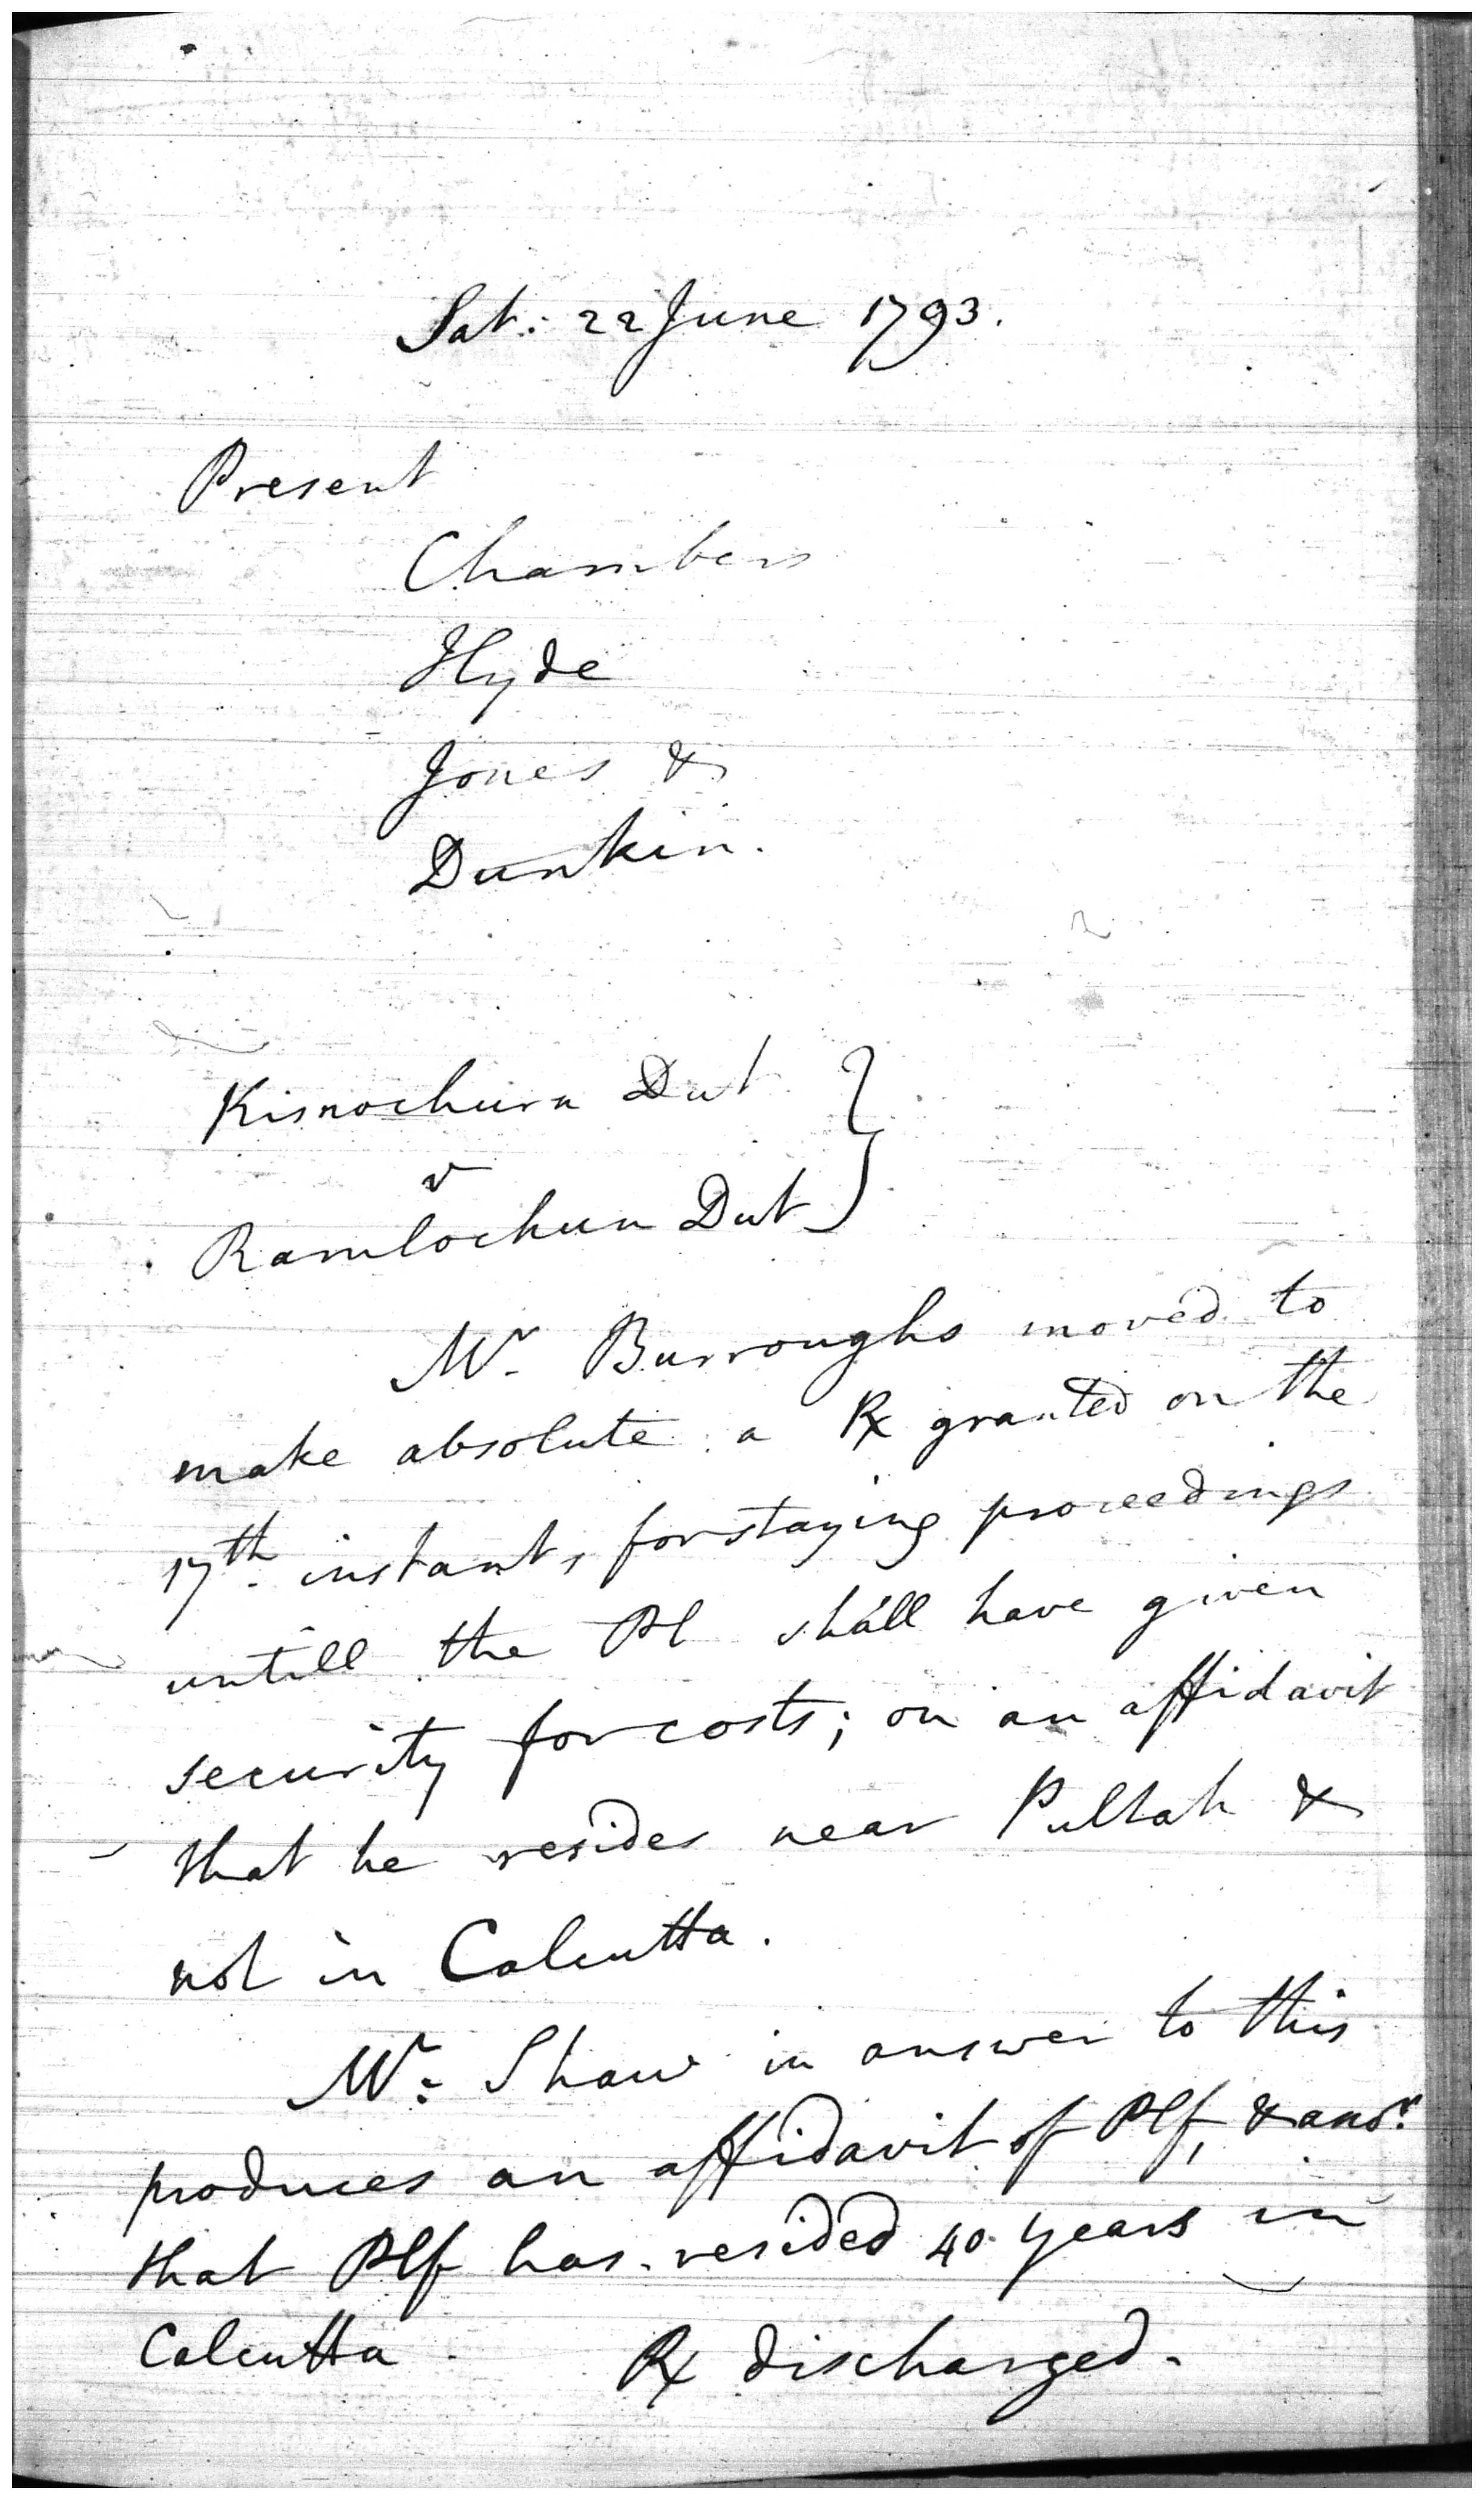 Sat: 22 June 1793.
Present
Chambers
Hyde
Jones &
Dunkin.
Kisnochurn Dut
v
Ramlochun Dut
Mr. Burroughs moved to
make absolute a Rx granted on the
17th. instant, for staying proceedings
untill the Pl shall have given
security for costs; on an affidavit
that he resides near Pultah &
not in Calcutta.
Mr: Shaw in answer to this
produces an affidavit of Plf, & anor.
that Plf has resided 40 years in
Calcutta. Rx discharged.